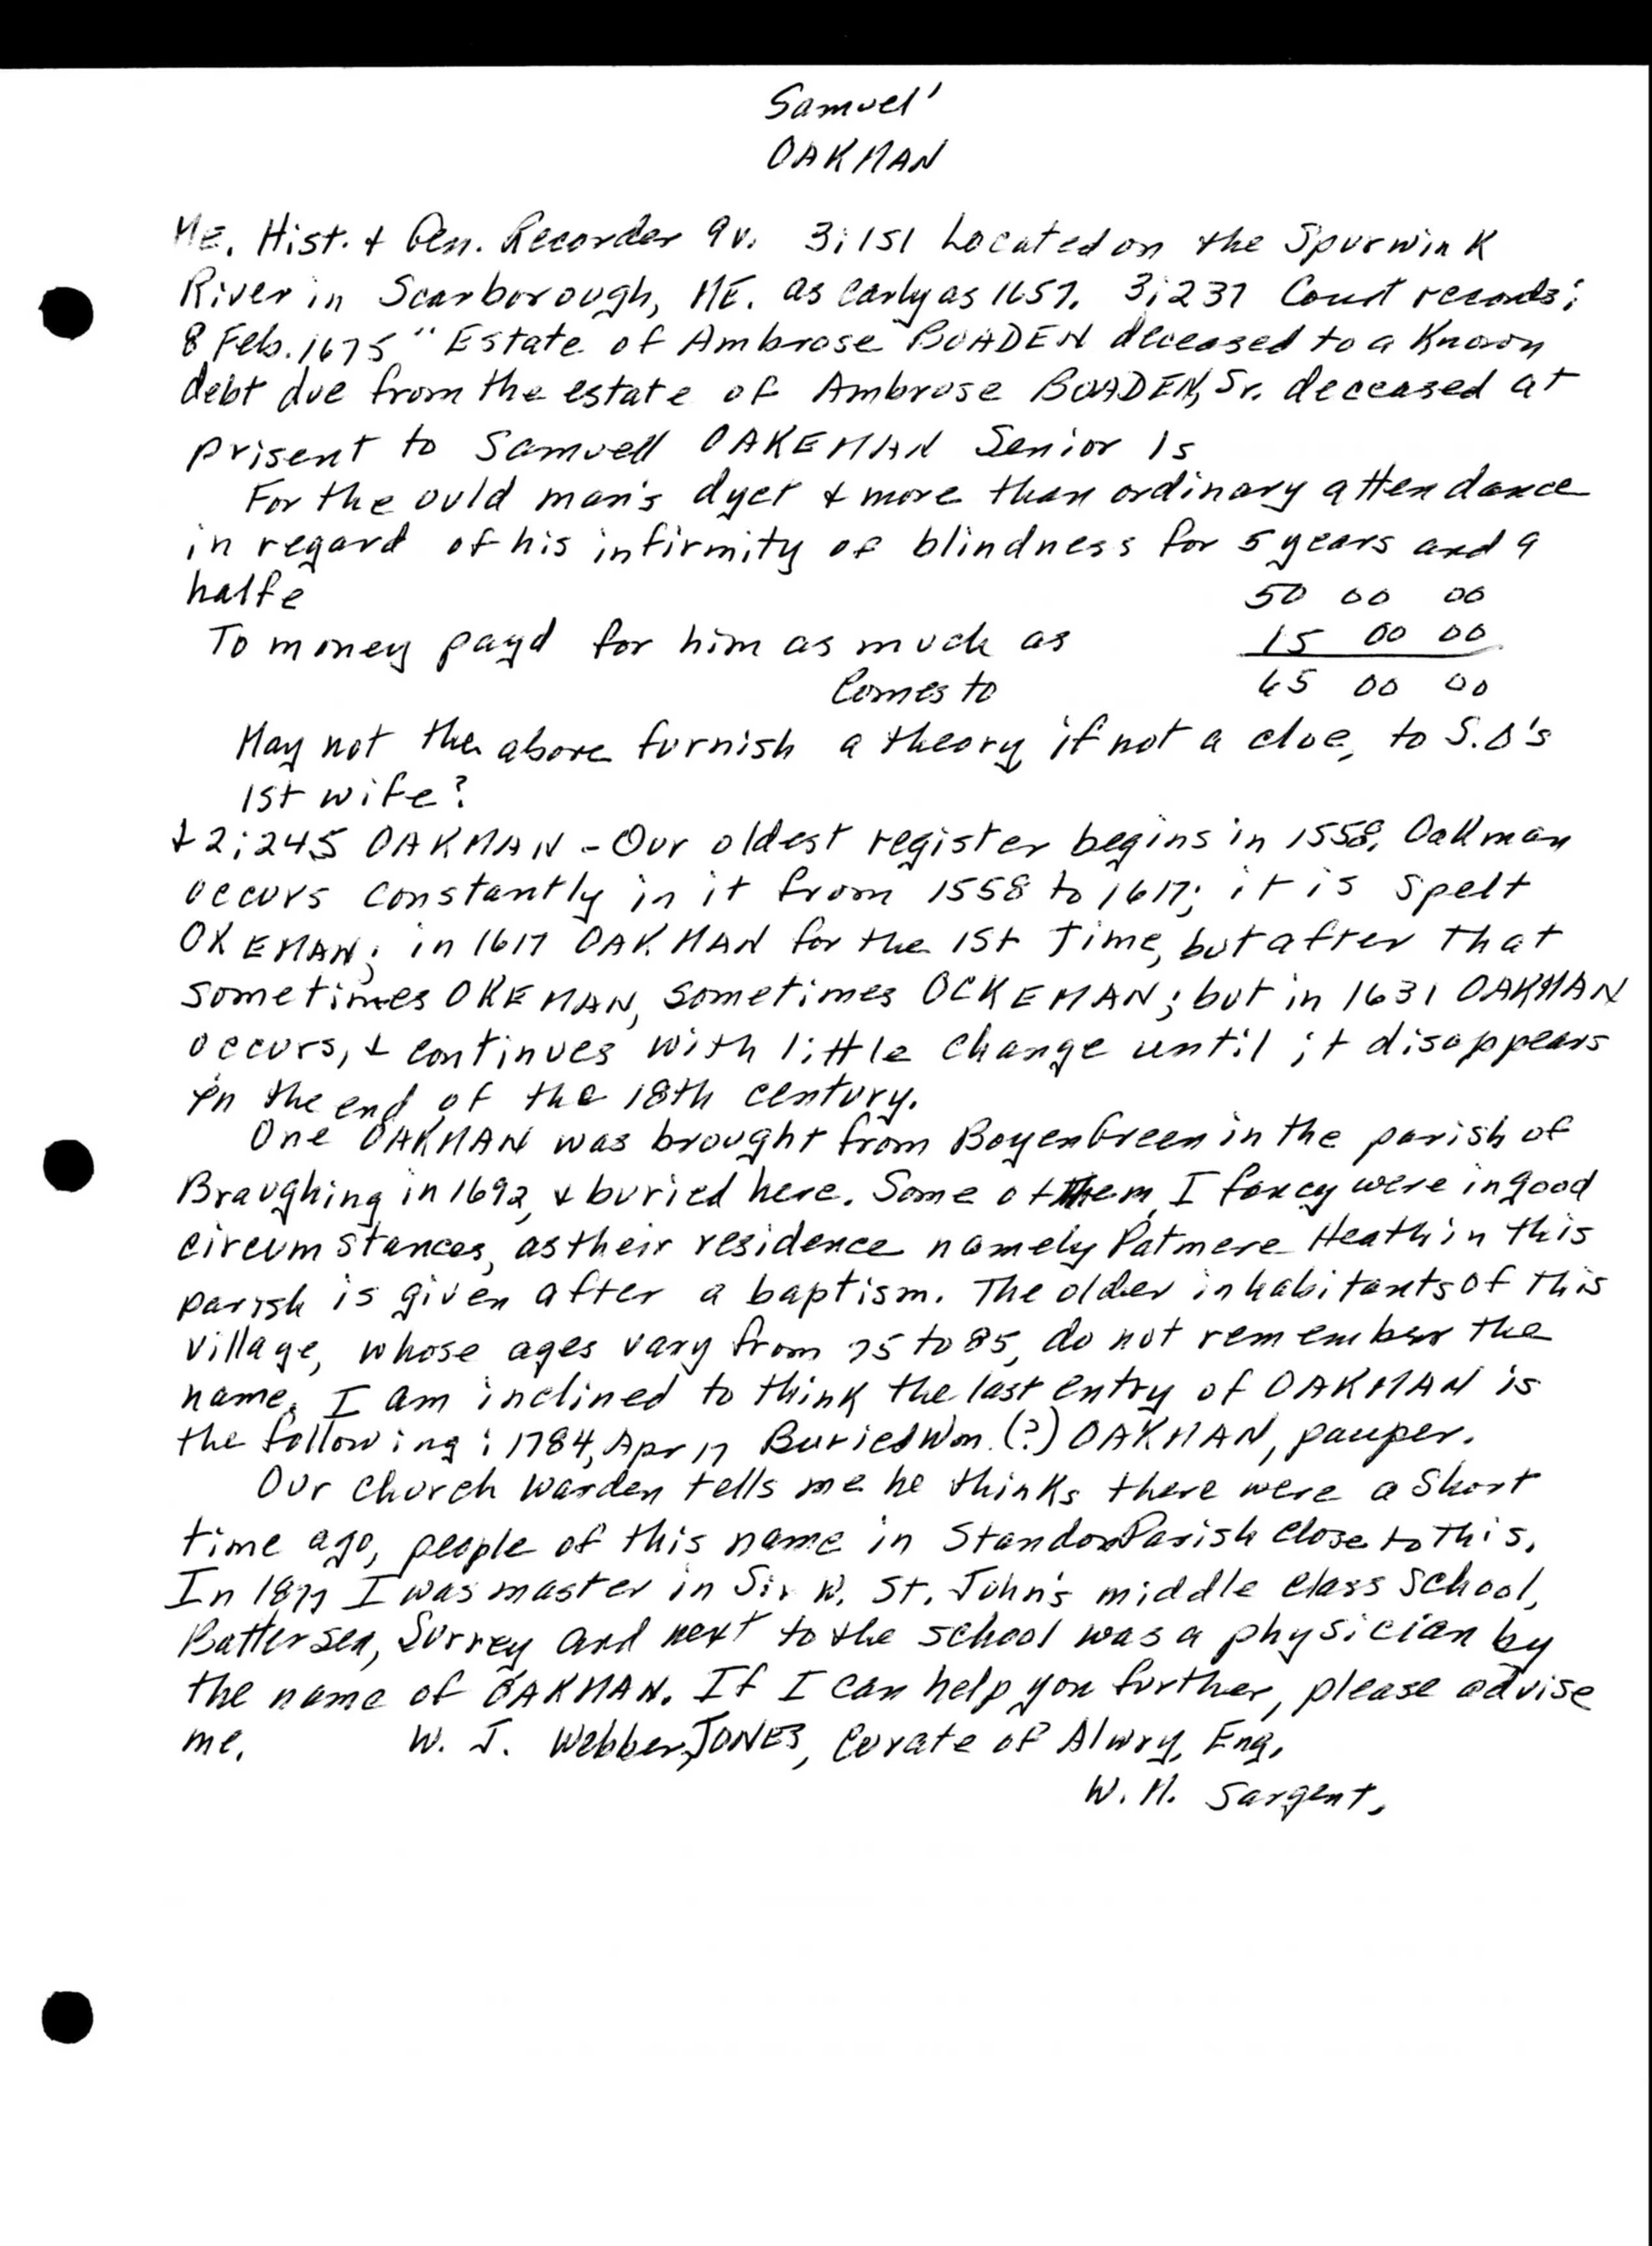 Samuel'
OAKMAN
ME. Hist. & Gen. Recorder 9v. 3:151 Located on the Spurwink
River in Scarborough, ME. as early as 1657. 3:237 Court records:
8 Feb. 1675 " Estate of Ambrose BOADEN deceased to a Known
debt due from the estate of Ambrose BOADEN, Sr. deceased at
prisent to Samuell OAKEMAN Senior Is
For the ould man's dyet & more than ordinary attendance
in regard of his infirmity of blindness for 5 years and a
halfe 50 00 00
To money payd for him as much as 15 00 00
Comes to 65 00 00
May not the above furnish a theory, if not a clue, to S.O's
1st wife?
& 2:245 OAKMAN - Our oldest register begins in 1558. Oakman
occurs constantly in it from 1558 to 1617; it is spelt
OKEMAN; in 1617 OAKMAN for the 1st Time, but after that
sometimes OKEMAN, sometimes OCKEMAN; but in 1631 OAKMAN
occurs, & continues with little change until it disappears
in the end of the 18th century.
One OAKMAN was brought from Boyen Green in the parish of
Braughing in 1692, & buried here. Some of them, I fancy were in good
circumstances, as their residence namely Patmere Heath in this
parish is given after a baptism. The older inhabitants of this
village, whose ages vary from 75 to 85, do not remember the
name. I am inclined to think the last entry of OAKMAN is
the following: 1784, Apr 17 Buried Wm. (?) OAKMAN, pauper.
Our church warden tells me he thinks there were a short
time ago, people of this name in Standon Parish close to this.
In 1877 I was master in Sir W. St. John's middle class School,
Battersea, Surrey and next to the school was a physician by
the name of OAKMAN. If I can help you further, please advise
me. W. J. Webber, JONES, Curate of Alwry, Eng.
W. M. Sargent.